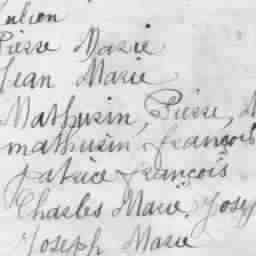 Julien
Pierre Marie
Jean Marie
Mathurin, Pierre, M
mathurin françois
patrice françois
Charles Marie, Josep
Joseph Marie